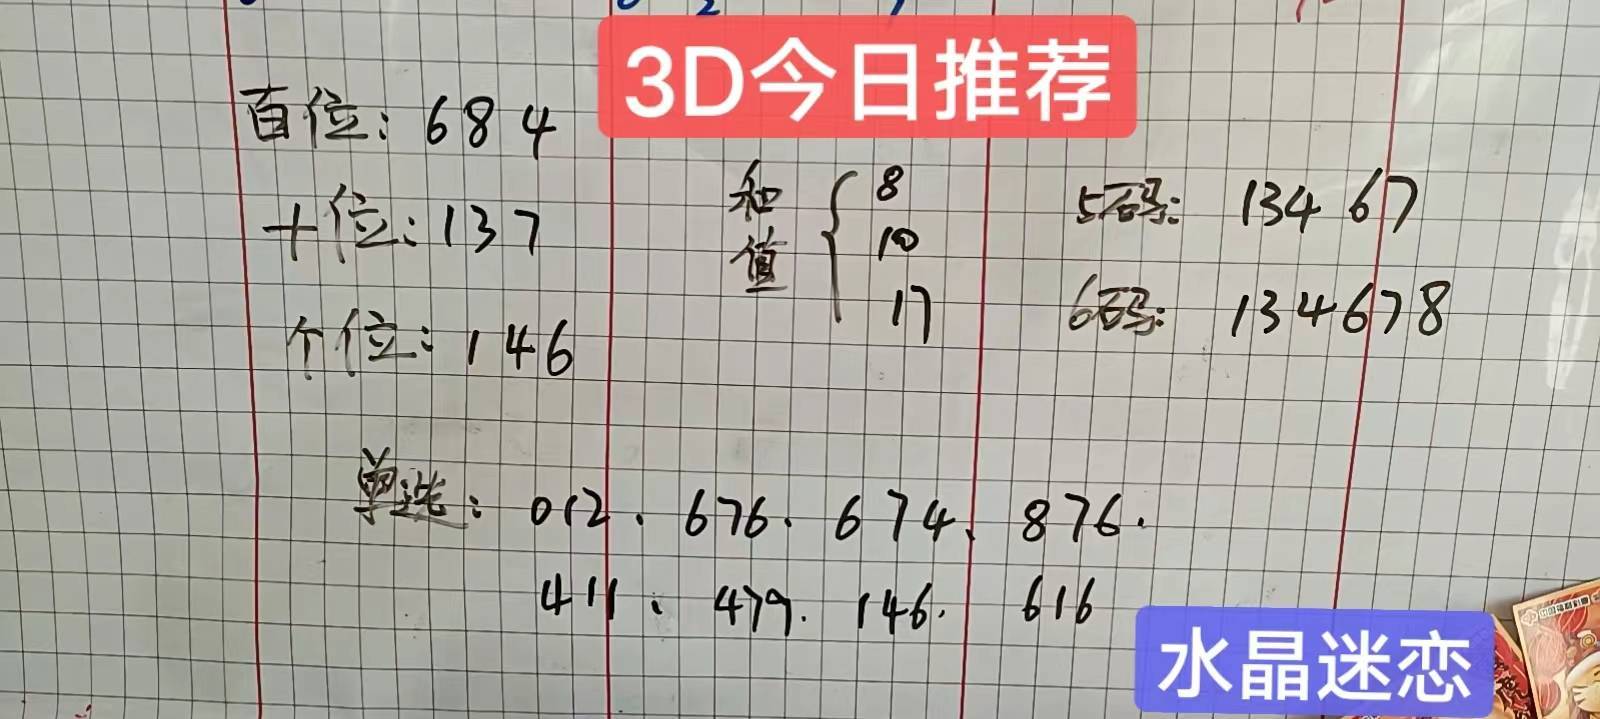 3D今日推荐
百位:684
十位:137
个位:146
和值 8 10 17
5码:13467
6码:134678
单选:012、676、674、876.
411、479.146.616
水晶迷恋
中国福利彩票